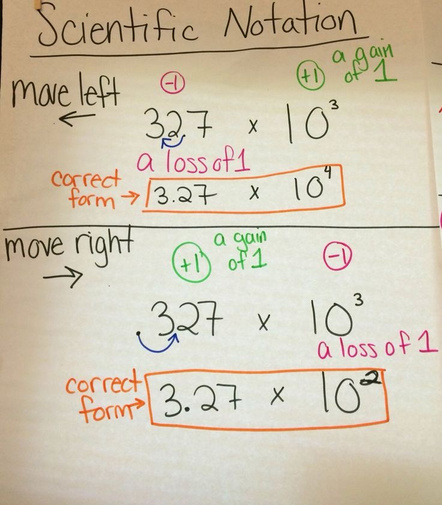 Scientific Notation
move left
-1
+1 a gain of 1
32.7 x 10³
a loss of 1
correct form → 3.27 x 10⁴
move right
+1 a gain of 1
-1
.327 x 10³
a loss of 1
correct form → 3.27 x 10²